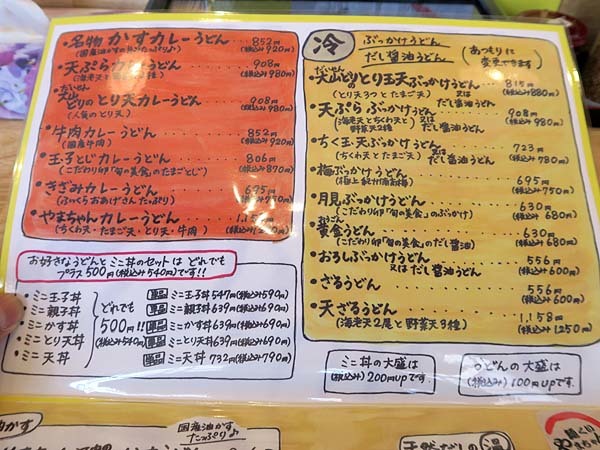 ・名物 かすカレーうどん ・・・ 852円
(国産油かすのホルモンたっぷり♪) (税込み920円)
・天ぷらカレーうどん ・・・ 908円
(海老天と (税込み980円)
・だいせん
大山どりのとり天カレーうどん ・・・ 908円
(人気のとり天) (税込み980円)
・牛肉カレーうどん ・・・ 852円
(国産牛肉) (税込み920円)
・玉子とじカレーうどん ・・・ 806円
(こだわり卵「旬の美食」のたまごとじ) (税込み870円)
・きざみカレーうどん ・・・ 695円
(ふっくらおあげさんたっぷり) (税込み750円)
・やまちゃんカレーうどん ・・・
(ちくわ天・たまご天・とり天・牛肉)
お好きなうどんとミニ丼のセットは どれでも
プラス500円(税込み540円)です!!
・ミニ玉子丼
・ミニ親子丼
・ミニかす丼
・ミニとり天丼
・ミニ天丼
どれでも
500円!!
(税込み540円)
単品 ミニ玉子丼547円(税込み590円)
単品 ミニ親子丼639円(税込み690円)
単品 ミニかす丼639円(税込み690円)
単品 ミニとり天丼639円(税込み690円)
単品 ミニ天丼 732円(税込み790円)
冷 ぶっかけうどん
だし醤油うどん
(あつもりに
変更できます)
・だいせん
大山どりのとり玉天ぶっかけうどん ・・・ 815円
(とり天3つとたまご天) 又は だし醤油うどん (税込み880円)
・天ぷらぶっかけうどん ・・・ 908円
(海老天とちくわ天と野菜天2種) 又は だし醤油うどん (税込み980円)
・ちく玉天ぶっかけうどん ・・・ 723円
(ちくわ天とたまご天) 又は だし醤油うどん (税込み780円)
・梅ぶっかけうどん ・・・ 695円
(極上 紀州南高梅) (税込み750円)
・月見ぶっかけうどん ・・・ 630円
(こだわり卵「旬の美食」のぶっかけ) (税込み680円)
・黄金うどん ・・・ 630円
(こだわり卵「旬の美食」のだし醤油) (税込み680円)
・おろしぶっかけうどん ・・・ 556円
又は だし醤油うどん (税込み600円)
・ざるうどん ・・・ 556円
(税込み600円)
・天ざるうどん ・・・ 1,158円
(海老天2尾と野菜天3種) (税込み1,250円)
ミニ丼の大盛は
(税込み)200円upです。
うどんの大盛は
(税込み)100円upです。
国産油かす
たっぷり♪